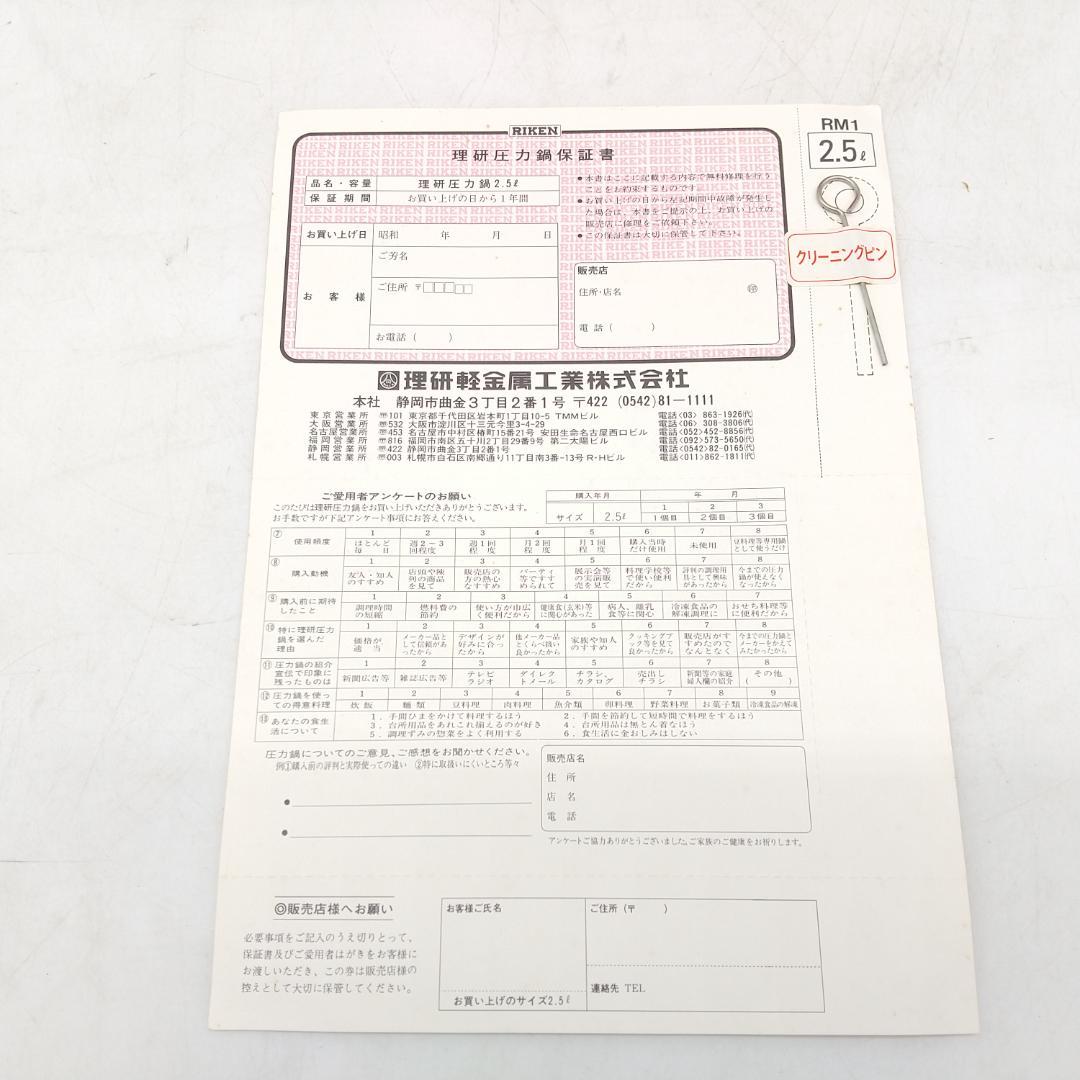 RIKEN
理研圧力鍋保証書
品名・容量 理研圧力鍋2.5ℓ
保証期間 お買い上げの日から1年間
●本書はここに記載する内容で無料修理を行うことをお約束するものです。
●お買い上げの日から左記期間中故障が発生した場合は、本書をご提示の上、お買い上げの販売店に修理をご依頼下さい。
●この保証書は大切に保管して下さい。
お買い上げ日 昭和 年 月 日
お客様
ご芳名
ご住所 〒
お電話( )
販売店
住所・店名 ㊞
電話( )
RM1
2.5ℓ
クリーニングピン
理研軽金属工業株式会社
本社 静岡市曲金3丁目2番1号 〒422 (0542)81-1111
東京営業所 〒101 東京都千代田区岩本町1丁目10-5 TMMビル 電話<03> 863-1926(代)
大阪営業所 〒532 大阪市淀川区十三元今里3-4-29 電話<06> 308-3806(代)
名古屋営業所 〒453 名古屋市中村区椿町15番21号 安田生命名古屋西口ビル 電話<052>452-8856(代)
福岡営業所 〒816 福岡市南区五十川2丁目29番9号 第二大陽ビル 電話<092>573-5650(代)
静岡営業所 〒422 静岡市曲金3丁目2番1号 電話<0542>82-0165(代)
札幌営業所 〒003 札幌市白石区南郷通り11丁目南3番-13号 R・Hビル 電話<011>862-1811(代)
ご愛用者アンケートのお願い
このたびは理研圧力鍋をお買い上げいただきありがとうございます。
お手数ですが下記アンケート事項にお答えください。
購入年月 年 月
サイズ 2.5ℓ 1 1個目 2 2個目 3 3個目
⑦ 使用頻度 1 ほとんど毎日 2 週2−3回程度 3 週1回程度 4 月2回程度 5 月1回程度 6 購入当時だけ使用 7 未使用 8 豆料理等専用鍋として使うだけ
⑧ 購入動機 1 友人・知人のすすめ 2 店頭や陳列の商品を見て 3 販売店の方の熱心なすすめ 4 パーティ等ですすめられて 5 展示会等の実演販売を見て 6 料理学校等で使い便利だから 7 評判の調理用具として興味があったから 8 今までの圧力鍋が使えなくなったから
⑨ 購入前に期待したこと 1 調理時間の短縮 2 燃料費の節約 3 使い方が巾広く便利だから 4 健康食(玄米)等に関心があった 5 病人、離乳食等に関心 6 冷凍食品の解凍調理に 7 おせち料理等に便利だから
⑩ 特に理研圧力鍋を選んだ理由 1 価格が適当 2 メーカー品として信頼があったから 3 デザインが好みに合ったから 4 他メーカー品とくらべ扱い良かったから 5 家族や知人のすすめ 6 クッキングブック等を見て良かったから 7 販売店がすすめたのでなんとなく 8 今までの圧力鍋とメーカーをかえてみたかったから
⑪ 圧力鍋の紹介宣伝で印象に残ったものは 1 新聞広告等 2 雑誌広告等 3 テレビラジオ 4 ダイレクトメール 5 チラシ、カタログ 6 売出しチラシ 7 新聞等の家庭婦人欄の紹介 8 その他( )
⑫ 圧力鍋を使っての得意料理 1 炊飯 2 麺類 3 豆料理 4 肉料理 5 魚介類 6 卵料理 7 野菜料理 8 お菓子類 9 冷凍食品の解凍
⑬ あなたの食生活について
1.手間ひまをかけて料理するほう 2.手間を節約して短時間で料理をするほう
3.台所用品をあれこれ揃えるのが好き 4.台所用品は無とん着なほう
5.調理ずみの惣菜をよく利用する 6.食生活に金おしみはしない
圧力鍋についてのご意見、ご感想をお聞かせください。
例①購入前の評判と実際使っての違い ②特に取扱いにくいところ等々
販売店名
住所
店名
電話
アンケートご協力ありがとうございました。ご家族のご健康をお祈りします。
◎販売店様へお願い
必要事項をご記入のうえ切りとって、
保証書及びご愛用者はがきをお客様に
お渡しいただき、この券は販売店様の
控えとして大切に保管してください。
お客様ご氏名
お買い上げのサイズ2.5ℓ
ご住所(〒 )
連絡先 TEL